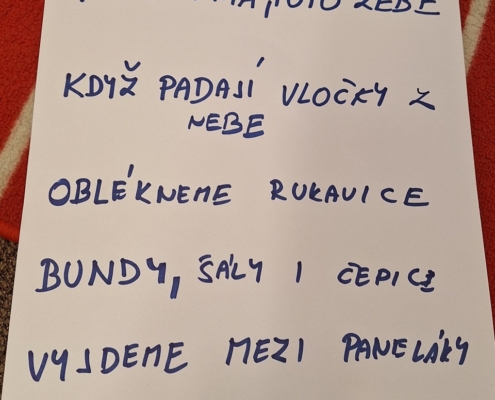 ZEBE
KDYŽ PADAJÍ VLOČKY Z
NEBE
OBLÉKNEME RUKAVICE
BUNDY, ŠÁLY I ČEPICE
VYJDEME MEZI PANELÁKY